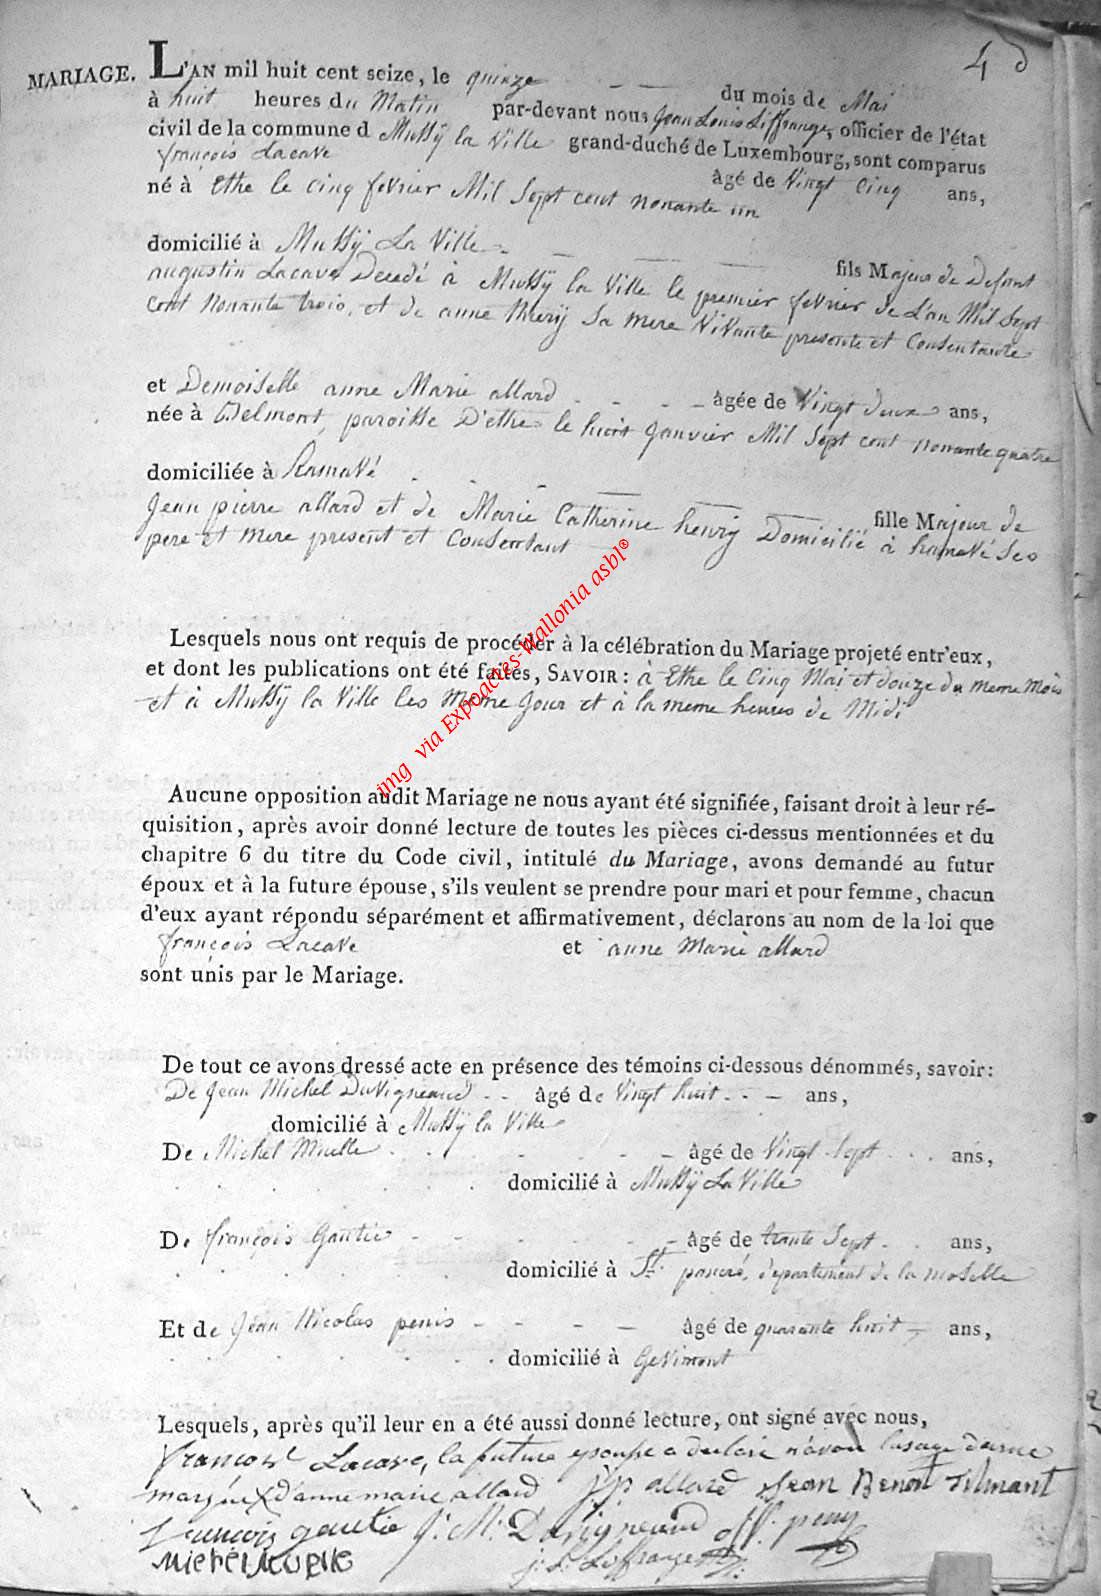 4 d
MARIAGE. L'AN mil huit cent seize, le quinze du mois de Mai
à huit heures du Matin par-devant nous Jean Louis Liffrange, officier de l'état
civil de la commune d Mussÿ la Ville grand-duché de Luxembourg, sont comparus
françois Lacave âgé de Vingt Cinq ans,
né à Ethe le Cinq fevrier Mil Sept cent nonante un
domicilié à Mussÿ La Ville fils Majeur de Defunt
augustin Lacave Decedé à Mussÿ la Ville le premier fevrier de L'an Mil Sept
cent Nonante trois, et de anne thierÿ Sa mere ViVante presente et Consentante
et Demoiselle anne Marie allard âgée de Vingt deux ans,
née à Belmont, paroisse D'ethe le huit Janvier Mil Sept cent nonante quatre
domiciliée à Hamavé fille Majeur de
Jean pierre allard et de Marie Catherine henrÿ Domicilié à hamavé Ses
pere et mere present et Consentant
img via Expoactes-Wallonia asbl®
Lesquels nous ont requis de procéder à la célébration du Mariage projeté entr'eux,
et dont les publications ont été faites, SAVOIR : à Ethe le Cinq Mai et douze du meme Mois
et à Mussÿ la Ville les meme Jour et à la meme heures de Midi
Aucune opposition audit Mariage ne nous ayant été signifiée, faisant droit à leur ré-
quisition, après avoir donné lecture de toutes les pièces ci-dessus mentionnées et du
chapitre 6 du titre du Code civil, intitulé du Mariage, avons demandé au futur
époux et à la future épouse, s'ils veulent se prendre pour mari et pour femme, chacun
d'eux ayant répondu séparément et affirmativement, déclarons au nom de la loi que
françois Lacave et anne Marie allard
sont unis par le Mariage.
De tout ce avons dressé acte en présence des témoins ci-dessous dénommés, savoir:
De Jean Michel DuVigneaud âgé de Vingt huit ans,
domicilié à Mussÿ la Ville
De Michel Muelle âgé de Vingt Sept ans,
domicilié à Mussÿ La Ville
De françois Gautie âgé de trante Sept ans,
domicilié à St pancré, departement de la moselle
Et de Jean Nicolas penis âgé de quarante huit ans,
domicilié à GeVimont
Lesquels, après qu'il leur en a été aussi donné lecture, ont signé avec nous,
francois Lacave, la future epouse a declaré n'avoir lusage
marque X d'anne marie allard jp allard Jean Benoit
francois gautie J. M. Duvigneaud
Michel j. L. Liffrange